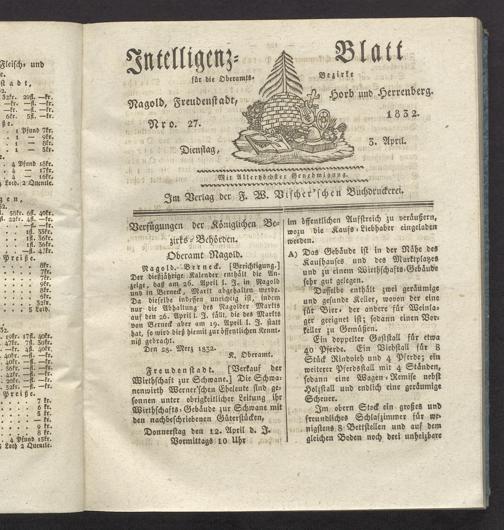 Fleisch- und
stadt,
Intelligenz- Blatt
für die Oberamts- Bezirke
Nagold, Freudenstadt, Horb und Herrenberg.
Nro. 27. 1832.
Dienstag, 3. April.
Mit Allerhöchster Genehmigung.
Im Verlag der F. W. Vischer'schen Buchdruckerei.
Verfügungen der Königlichen Be-
zirks-Behörden.
Oberamt Nagold.
Nagold. Berneck. [Berichtigung.]
Der diesjährige Kalender enthält die An-
zeige, daß am 26. April l. J. in Nagold
und in Berneck, Markt abgehalten werde.
Da dieselbe indessen unrichtig ist, indem
nur die Abhaltung des Nagolder Markts
auf den 26. April l. J. fällt, die des Markts
von Berneck aber am 19. April l. J. statt
hat, so wird dieß hiemit zur öffentlichen Kennt-
niß gebracht.
Den 28. Merz 1832.
K. Oberamt.
Freudenstadt. [Verkauf der
Wirthschaft zur Schwane.] Die Schwa-
nenwirth Werner'schen Eheleute sind ge-
sonnen unter obrigkeitlicher Leitung ihr
Wirthschafts-Gebäude zur Schwane mit
den nachbeschriebenen Güterstücken,
Donnerstag den 12. April d. J.
Vormittags 10 Uhr
im öffentlichen Aufstreich zu veräußern,
wozu die Kaufs-Liebhaber eingeladen
werden.
A) Das Gebäude ist in der Nähe des
Kaufhauses und des Marktplatzes
und zu einem Wirthschafts-Gebäude
sehr gut gelegen.
Dasselbe enthält zwei geräumige
und gesunde Keller, wovon der eine
für Bier, der andere für Weinla-
ger geeignet ist; sodann einen Vor-
keller zu Gemüßen.
Ein doppelter Gaststall für etwa
40 Pferde. Ein Viehstall für 8
Stück Rindvieh und 4 Pferde; ein
weiterer Pferdstall mit 4 Ständen,
sodann eine Wagen-Remise nebst
Holzstall und endlich eine geräumige
Scheuer.
Im obern Stock ein großes und
freundliches Schlafzimmer für we-
nigstens 8 Bettstellen und auf dem
gleichen Boden noch drei unheizbare